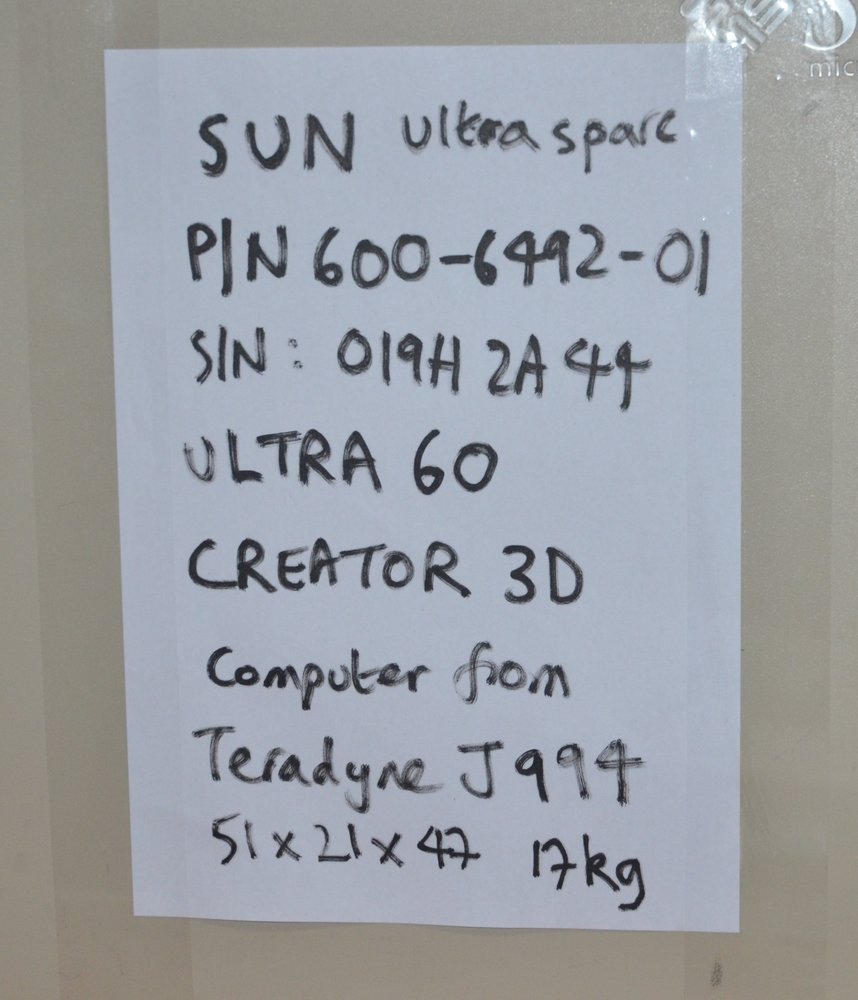 mic
SUN ultra sparc
P/N 600-6492-01
S/N: 019H 2A44
ULTRA 60
CREATOR 3D
Computer from
Teradyne J994
51 x 21 x 47 17kg